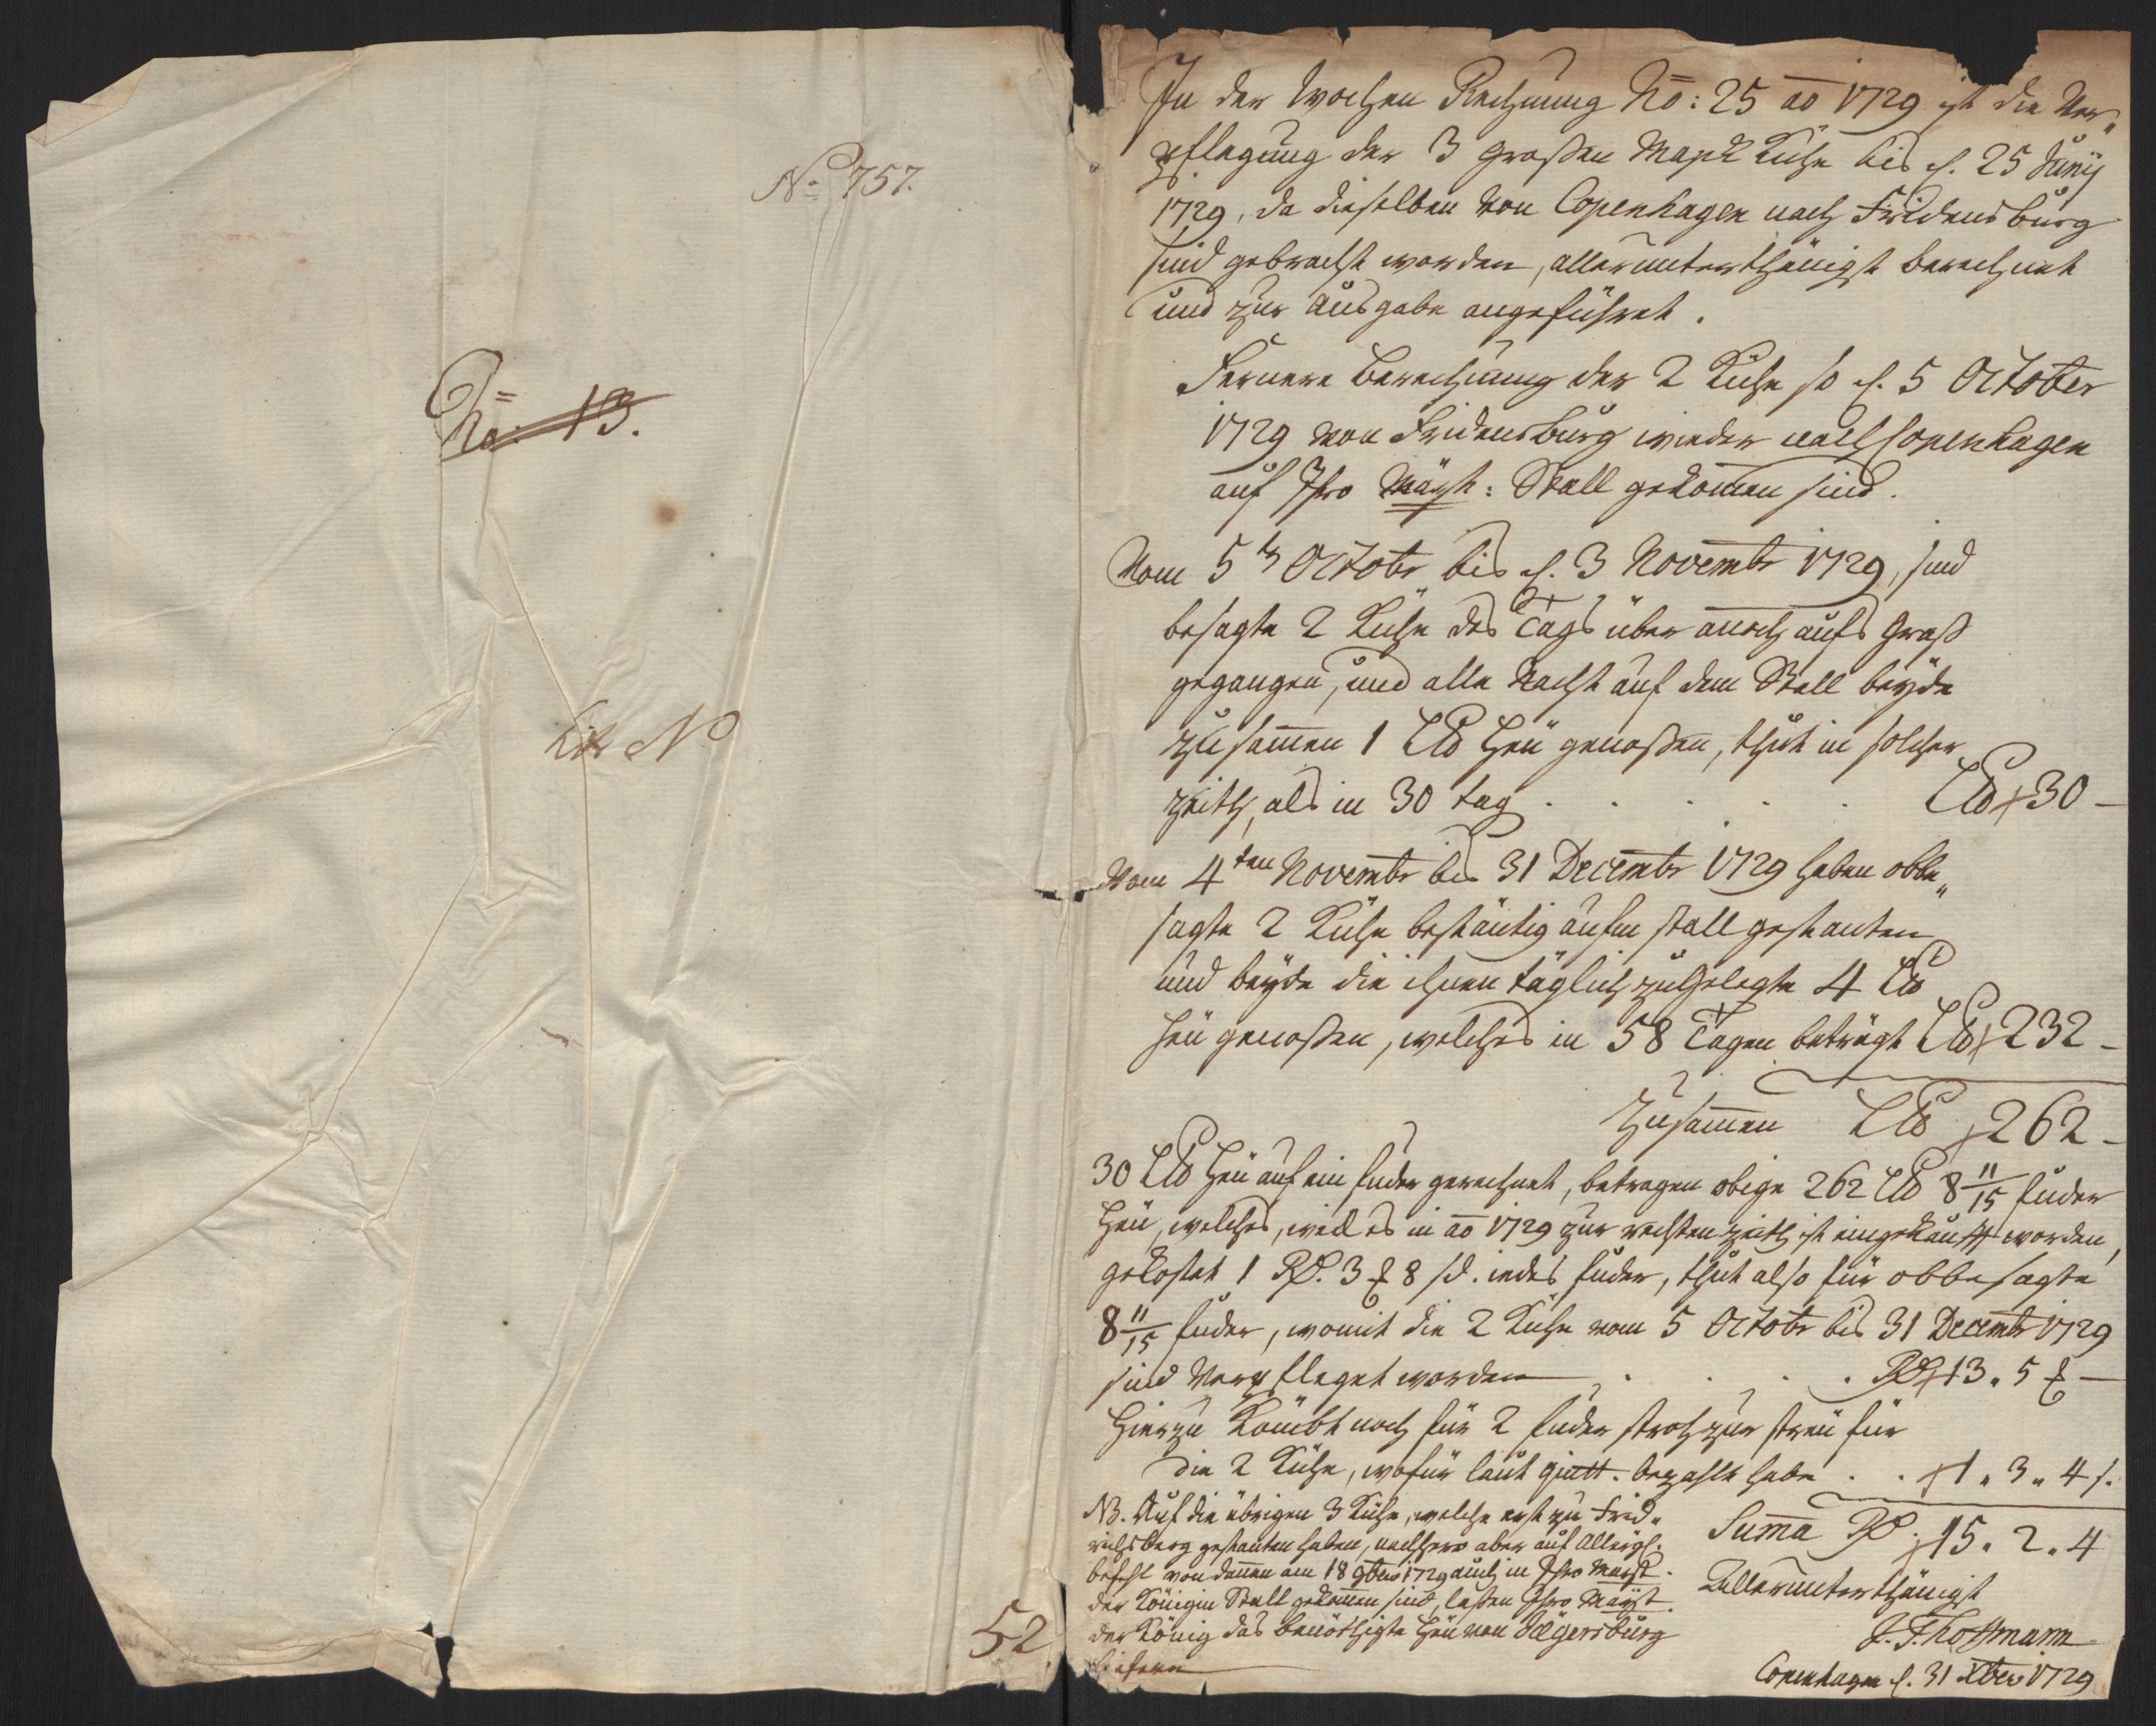 No 757.
No. 13.
Litr N
52
In der Wochen Rechnung No: 25 ao 1729 ist die Ver„
pflegung der 3 großen Kühe bis d. 25 Junij
1729, da dieselben von Copenhagen nach Fridensburg
sind gebracht worden, allerunterthänigst berechnet
und zur Ausgabe angeführet.
Fernere Berechnung der 2 Kühe so d. 5 October
1729 von Fridensburg wieder nach Copenhagen
auf Ihro Mayst: Stall gekom̄en sind.
Vom 5 t Octobr bis d. 3 Novembr 1729, sind
besagte 2 Kühe des Tags über annoch aufs Graß
gegangen, und alle Nacht auf dem Stall beyde
zusam̄en 1 L℔ Heü genoßen, thut in solcher
Zeith, als in 30 tag . . . . . L℔ 30 –
Vom 4ten Novembr bis 31 Decembr 1729 haben obbe„
sagte 2 Kühe beständig aufm stall gestanten
und beyde die ihnen täglich zugelegte 4 L℔
Heü genoßen, welches in 58 Tagen beträgt L℔ 232 –
Zusam̄en L℔ 262 –
30 L℔ Heü auf ein fuder gerechnet, betragen obige 262 L℔ 8 11/15 fuder
Heü, welches, weil es in ao 1729 zur rechten Zeith ist eingekaufft worden,
gekostet 1 Rd. 3 ₰ 8 sd. iedes fuder, thut also für obbesagte
8 11/15 fuder, womit die 2 Kühe vom 5 Octobr bis 31 Decembr 1729
sind verpfleget worden . . . . Rd 13. 5 ₰ –
Hierzu kombt noch für 2 fuder stroh zur streü für
die 2 Kühe, wofür laut quitt. bezahlt habe . . 1„ 3„ 4 s.
Sum̄a Rd. 15„ 2„ 4
NB. Auf die übrigen 3 Kühe, welche erst zu Frid„
richsberg gestanten haben, nachhero aber auf Allergst.
befehl von dannen am 18 9bris 1729 auch in Ihro Mayst.
der Königin Stall gekom̄en sind, laßen Ihro Mayst.
der König das benöthigte Heü von Jægersburg
liefern
Allerunterthänigst
J. F. Hoffmann
Copenhagen d. 31 Xbris 1729